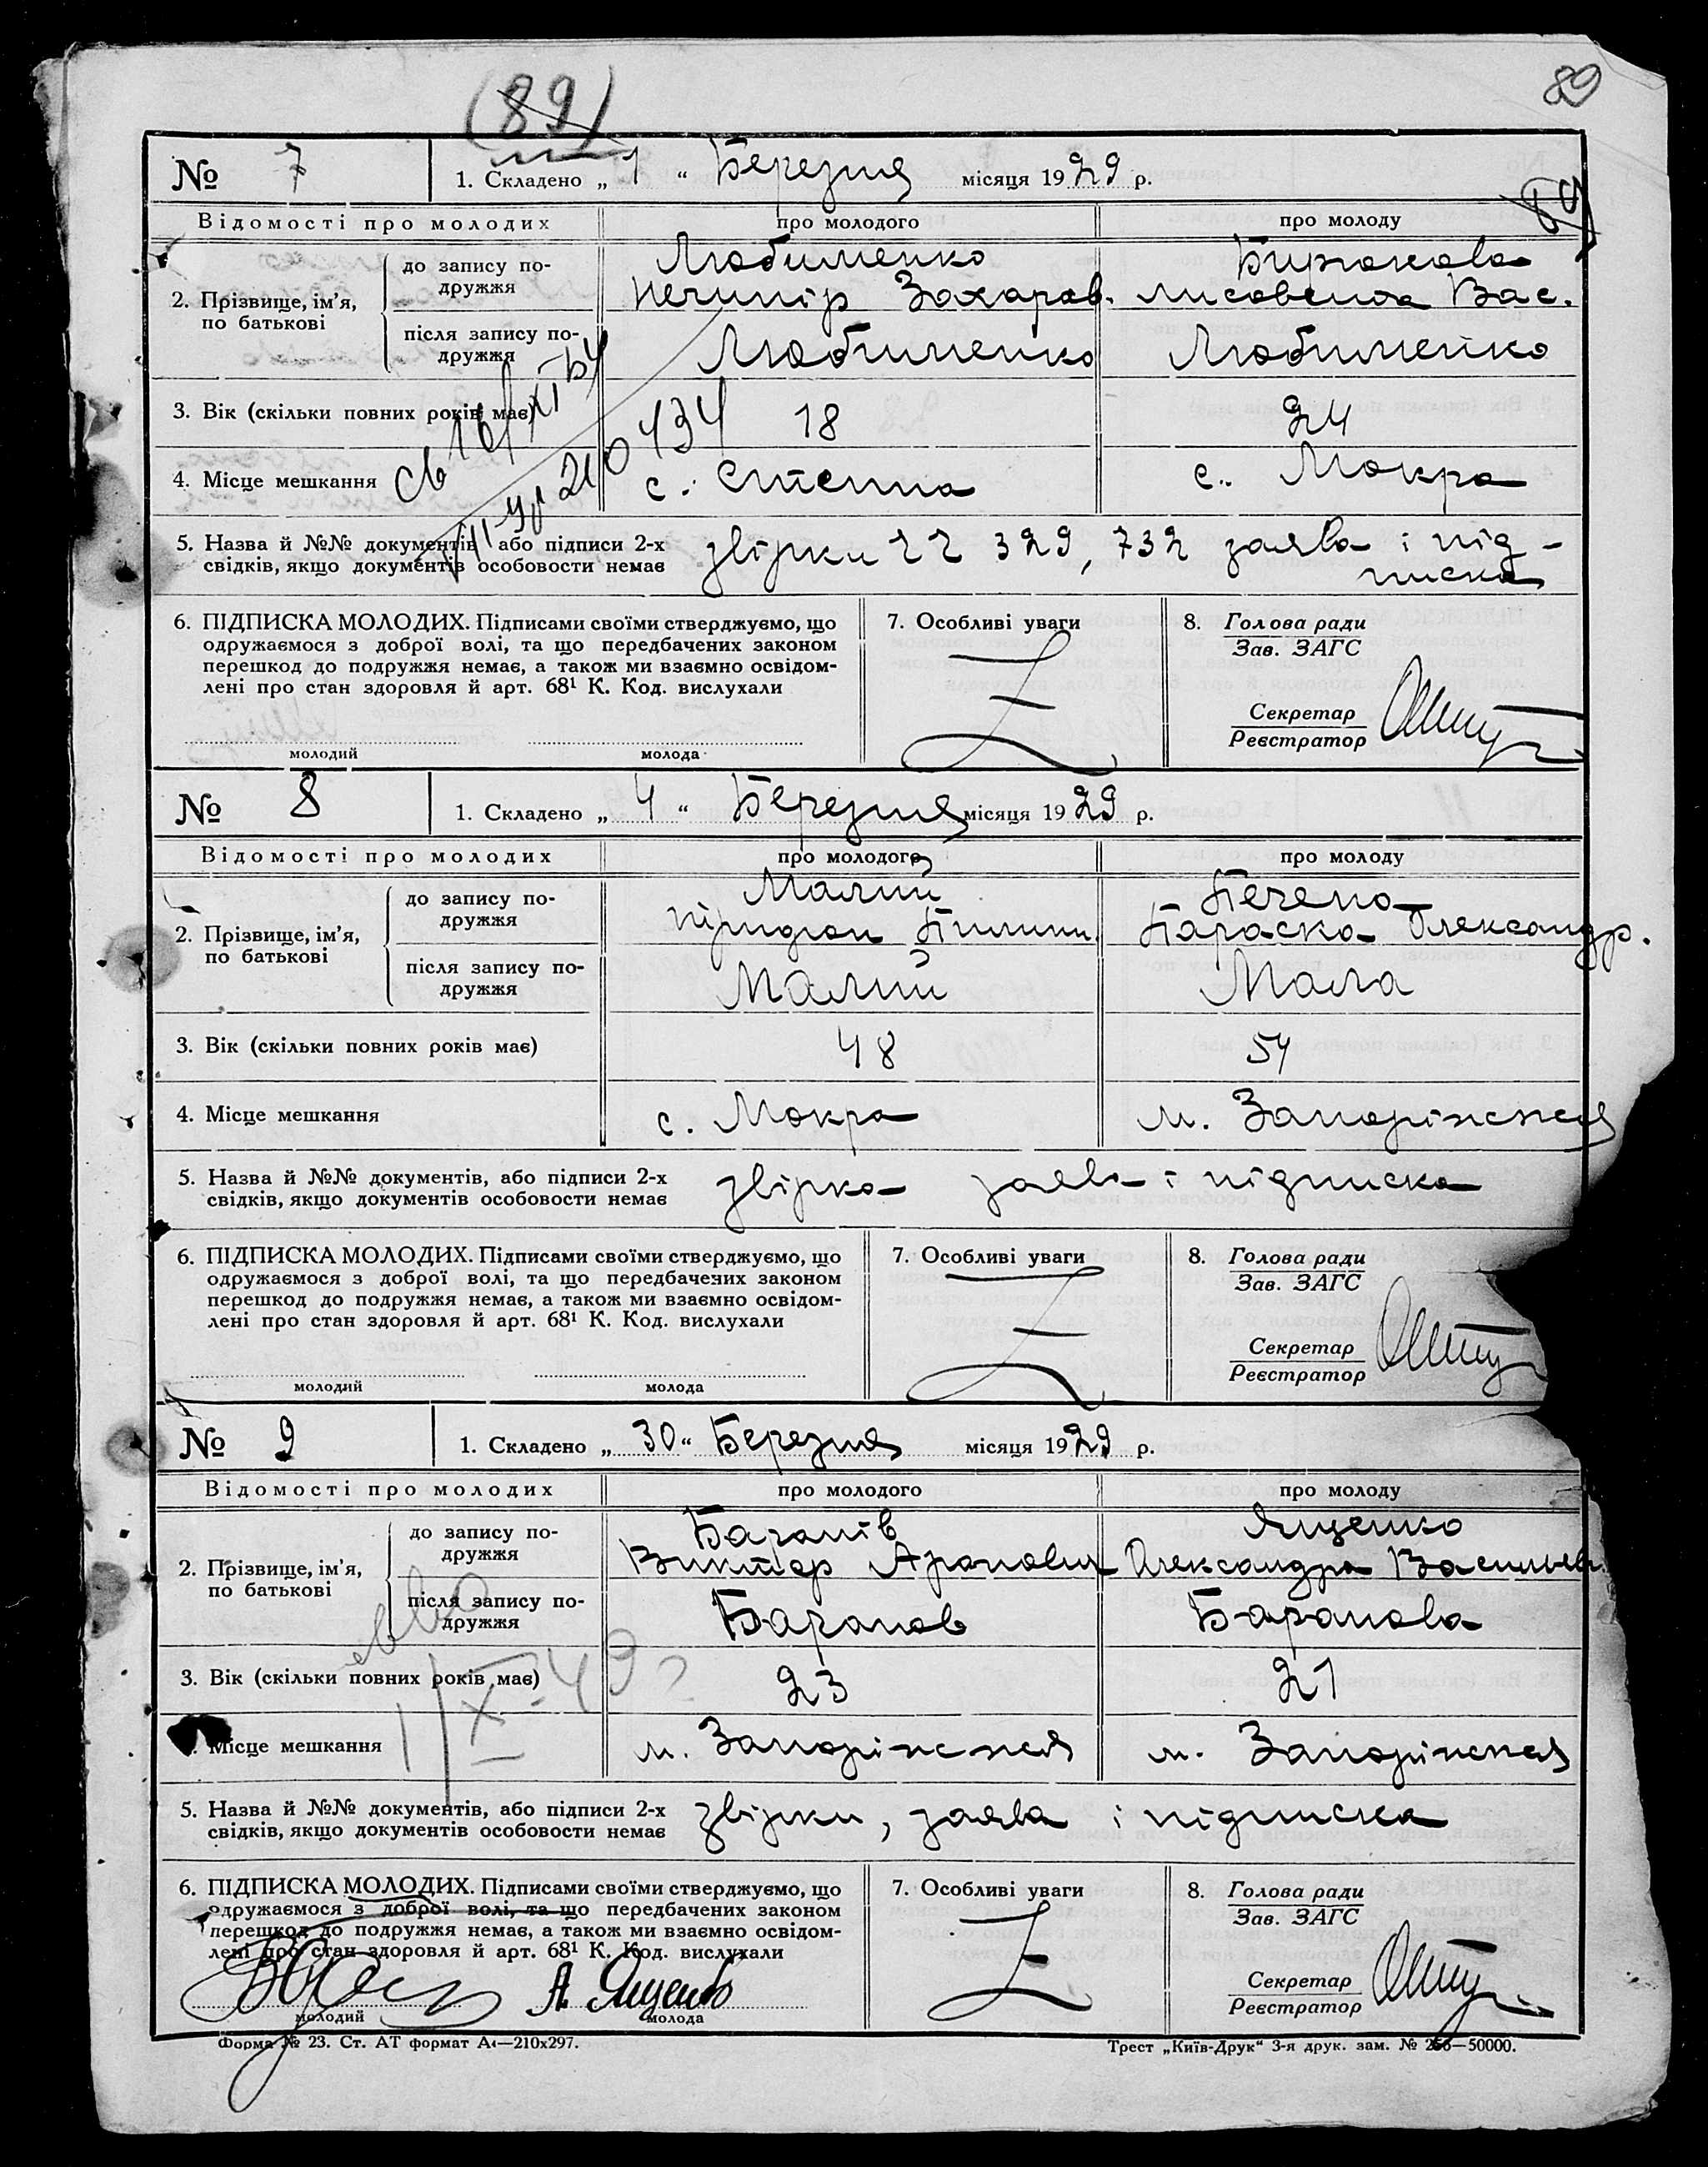 (89)
89
№ 7
1. Складено „ 1 “ Березня місяця 1929 р.
Відомості про молодих
про молодого
про молоду
2. Прізвище, ім'я, по батькові
до запису подружжя
Любименко
Нечипір Захаров.
Бирюкова
Лисовета Вас.
після запису подружжя
Любименко
Любименко
3. Вік (скільки повних років має)
18
24
4. Місце мешкання
с. Степна
с. Мокра
5. Назва й №№ документів, або підписи 2-х
свідків, якщо документів особовости немає
звірки 22 329, 732 заява і під-
писка
6. ПІДПИСКА МОЛОДИХ. Підписами своїми стверджуємо, що
одружаємося з доброї волі, та що передбачених законом
перешкод до подружжя немає, а також ми взаємно освідом-
лені про стан здоровля й арт. 68¹ К. Код. вислухали
молодий
молода
7. Особливі уваги
8. Голова ради
Зав. ЗАГС
Секретар
Реєстратор
№ 8
1. Складено „ 4 “ Березня місяця 1929 р.
Відомості про молодих
про молодого
про молоду
2. Прізвище, ім'я, по батькові
до запису подружжя
Малий
Пилипи.
Печено
Параска Олександр.
після запису подружжя
Малий
Мала
3. Вік (скільки повних років має)
48
54
4. Місце мешкання
с. Мокра
м. Запоріжжя
5. Назва й №№ документів, або підписи 2-х
свідків, якщо документів особовости немає
звірка заява і підписка
6. ПІДПИСКА МОЛОДИХ. Підписами своїми стверджуємо, що
одружаємося з доброї волі, та що передбачених законом
перешкод до подружжя немає, а також ми взаємно освідом-
лені про стан здоровля й арт. 68¹ К. Код. вислухали
молодий
молода
7. Особливі уваги
8. Голова ради
Зав. ЗАГС
Секретар
Реєстратор
№ 9
1. Складено „ 30 “ Березня місяця 1929 р.
Відомості про молодих
про молодого
про молоду
2. Прізвище, ім'я, по батькові
до запису подружжя
Баранів
Виктор
Ященко
Олександра Васильев.
після запису подружжя
Баранов
Баранова
3. Вік (скільки повних років має)
23
21
Місце мешкання
м. Запоріжжя
м. Запоріжжя
5. Назва й №№ документів, або підписи 2-х
свідків, якщо документів особовости немає
звірки, заява і підписка
6. ПІДПИСКА МОЛОДИХ. Підписами своїми стверджуємо, що
одружаємося з доброї волі, та що передбачених законом
перешкод до подружжя немає, а також ми взаємно освідом-
лені про стан здоровля й арт. 68¹ К. Код. вислухали
А. Ященко
молодий
молода
7. Особливі уваги
8. Голова ради
Зав. ЗАГС
Секретар
Реєстратор
Форма № 23. Ст. АТ формат А4—210х297.
Трест „Київ-Друк“ 3-я друк. зам. № 256—50000.